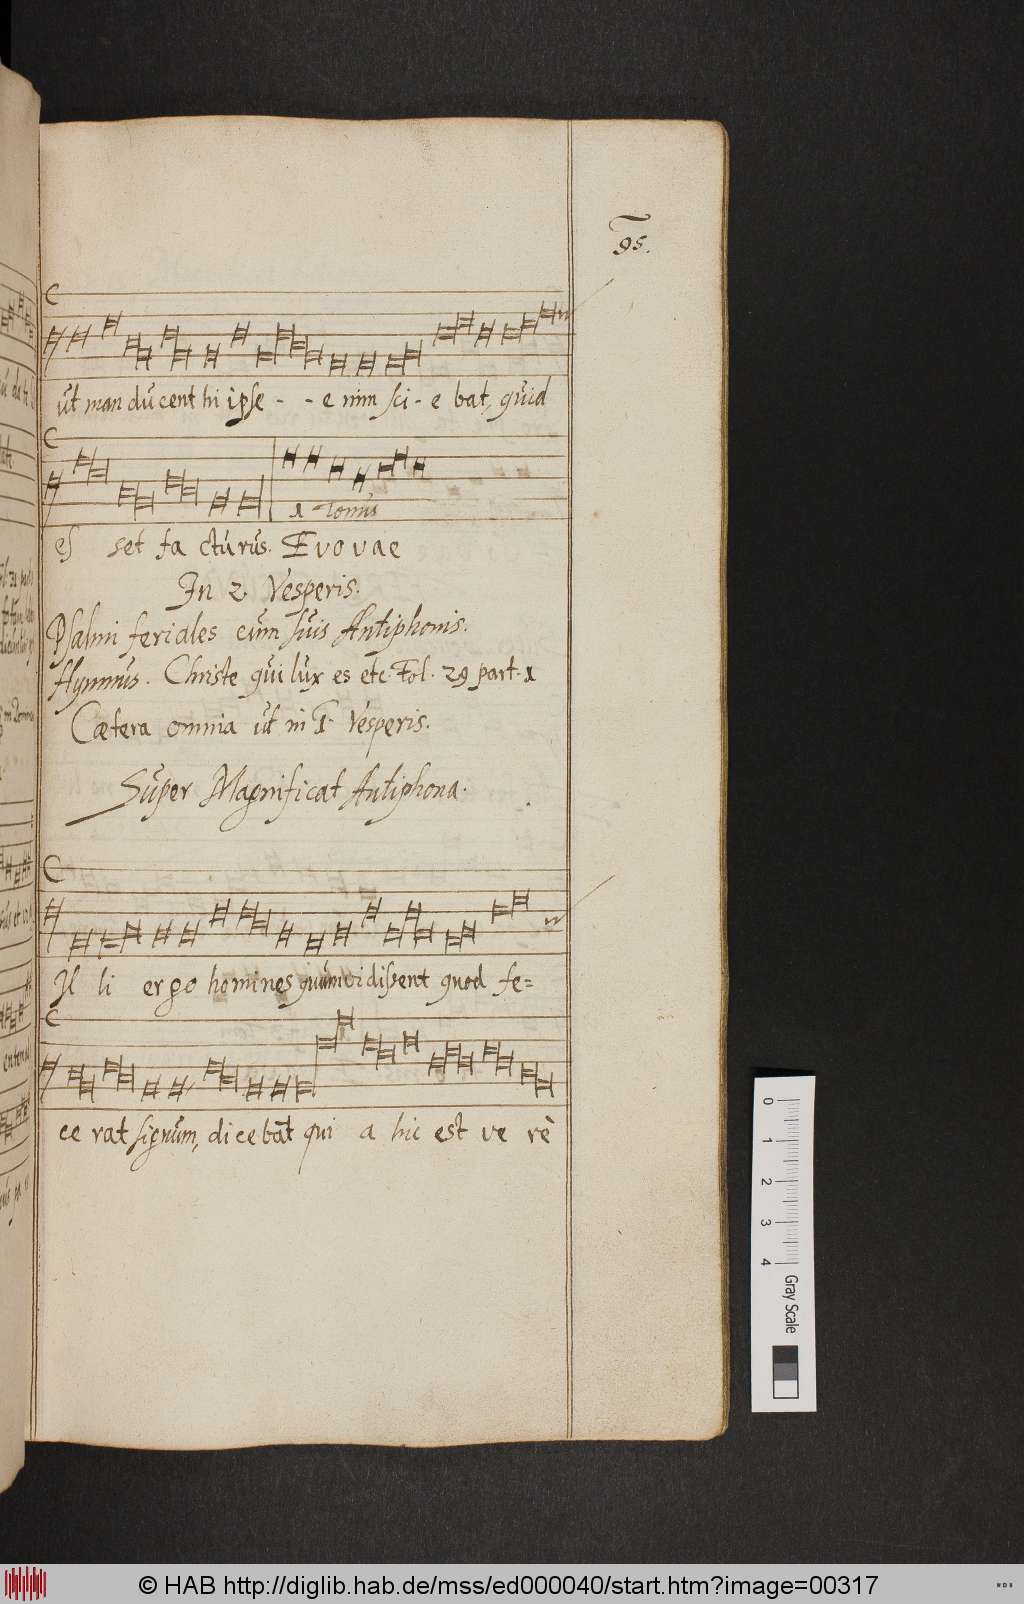 95.
ut man ducent hi ipse - - e nim sci - e bat, quid
1 Tonus
es set fa cturus. Evovae
In 2. Vesperis.
Psalmi feriales cum suis Antiphonis.
Hymnus. Christe qui lux es etc. Fol. 29 part. 1
Cætera omnia ut in 1. Vesperis.
Super Magnificat Antiphona.
Il li ergo homines quum vidissent quod fe=
ce rat signum, dicebāt qui a hic est ve rè
0 1 2 3 4 Gray Scale
© HAB http://diglib.hab.de/mss/ed000040/start.htm?image=00317